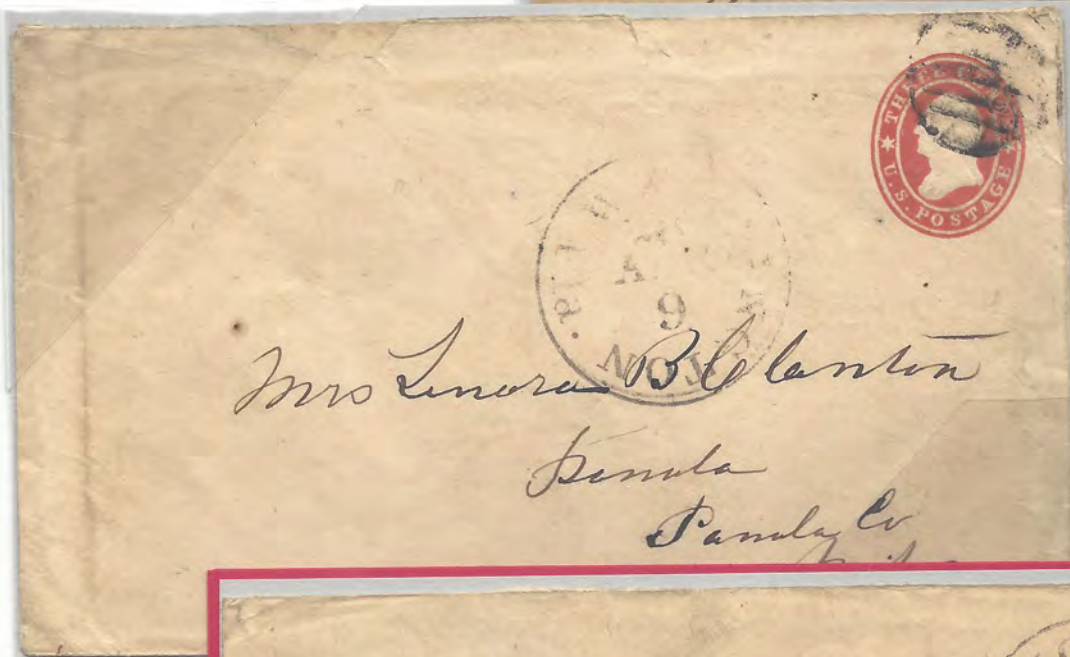 THREE
U.S. POSTAGE
9
Mrs Lenora B Clanton
Panola
Panola Co